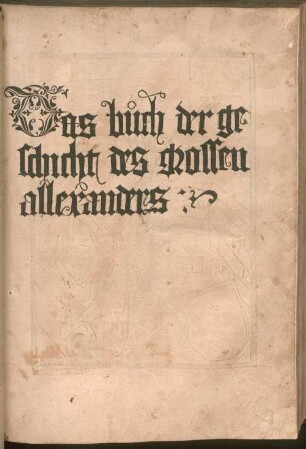 Das bůch der ge
schicht des grossen
allexanders :~